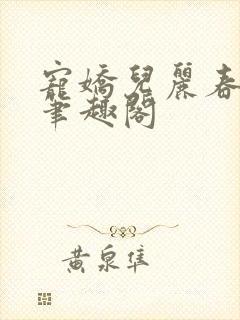 寵嬌兒麗春
筆趣閣
黃泉隼